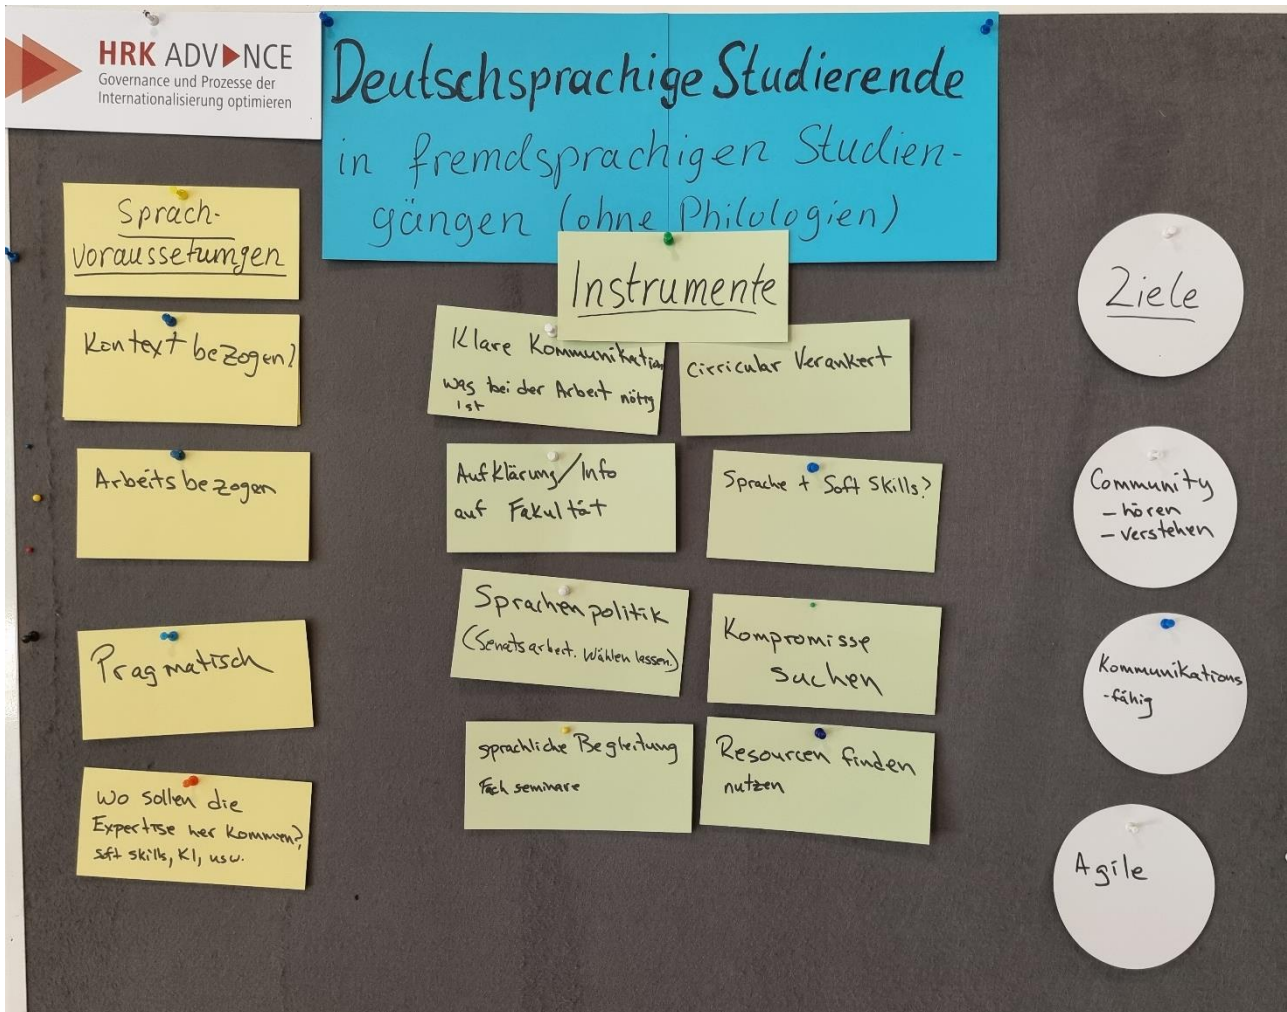 HRK ADVANCE
Governance und Prozesse der
Internationalisierung optimieren
Deutschsprachige Studierende
in fremdsprachigen Studien-
gängen (ohne Philologien)
Sprach-
voraussetzungen
Kontext bezogen?
Arbeitsbezogen
Pragmatisch
Wo sollen die
Expertise her kommen?
Soft skills, KI, usw.
Instrumente
Klare Kommunikation
was bei der Arbeit nötig
ist
Cirricular Verankert
Aufklärung/Info
auf Fakultät
Sprache + Soft Skills?
Sprachenpolitik
(Senatsarbeit. Wählen lassen.)
Kompromisse
suchen
sprachliche Begleitung
Fach seminare
Resourcen finden
nutzen
Ziele
Community
- hören
- verstehen
Kommunikations
-fähig
Agile